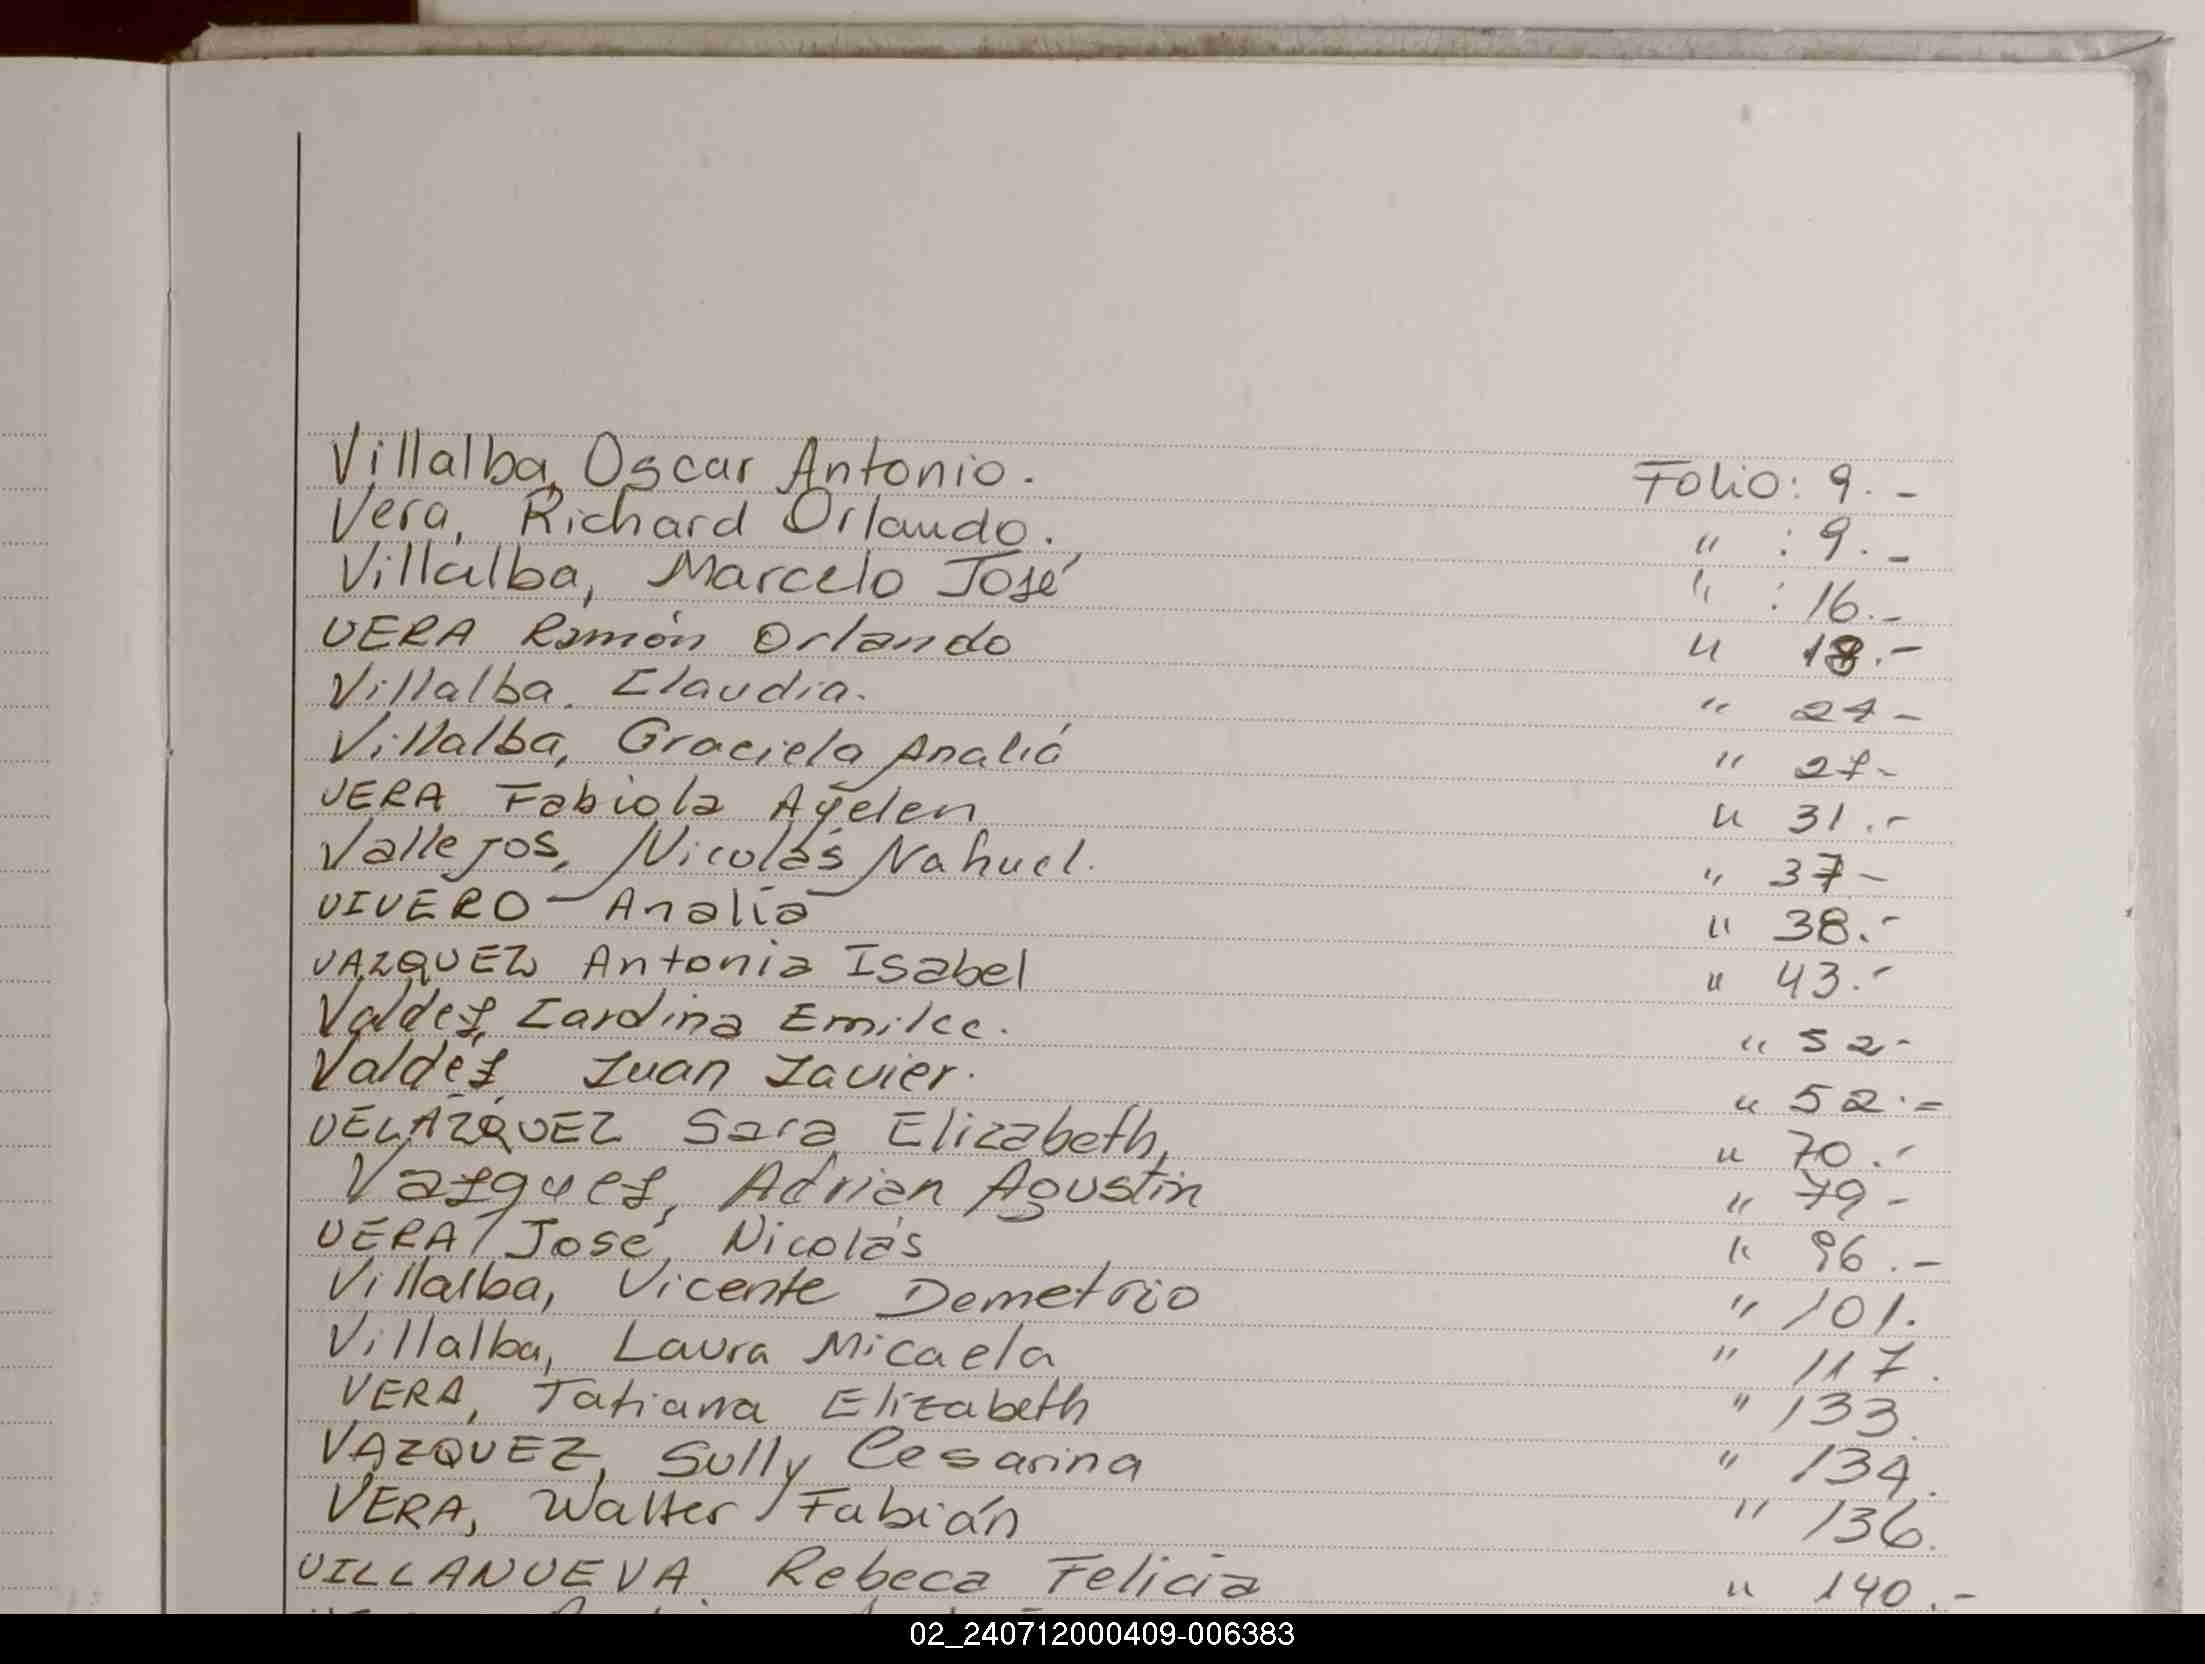 Villalba, Oscar Antonio. Folio: 9.-
Vera, Richard Orlando. " : 9.-
Villalba, Marcelo José " : 16.-
VERA Ramón Orlando " 18.-
Villalba, Claudia. " 27-
Villalba, Graciela Analiá " 27-
VERA Fabiola Ayelen " 31.-
Vallejos, Nicolás Nahuel. " 37-
VIVERO Analía " 38.-
VAZQUEZ Antonia Isabel " 43.-
Valdez, Emilce. " 52-
Valdéz, Juan Javier. " 52.=
VELÁZQUEZ Sara Elizabeth, " 70.-
Vazquez, Adrian Agustín " 79-
VERA, José Nicolás " 96.-
Villalba, Vicente Demetrio " 101.
Villalba, Laura Micaela " 117.
VERA, Tatiana Elizabeth " 133.
VAZQUEZ, Sully Cesarina " 134.
VERA, Walter Fabián " 136.
VILLANUEVA Rebeca Felicia " 140.-
02_240712000409-006383